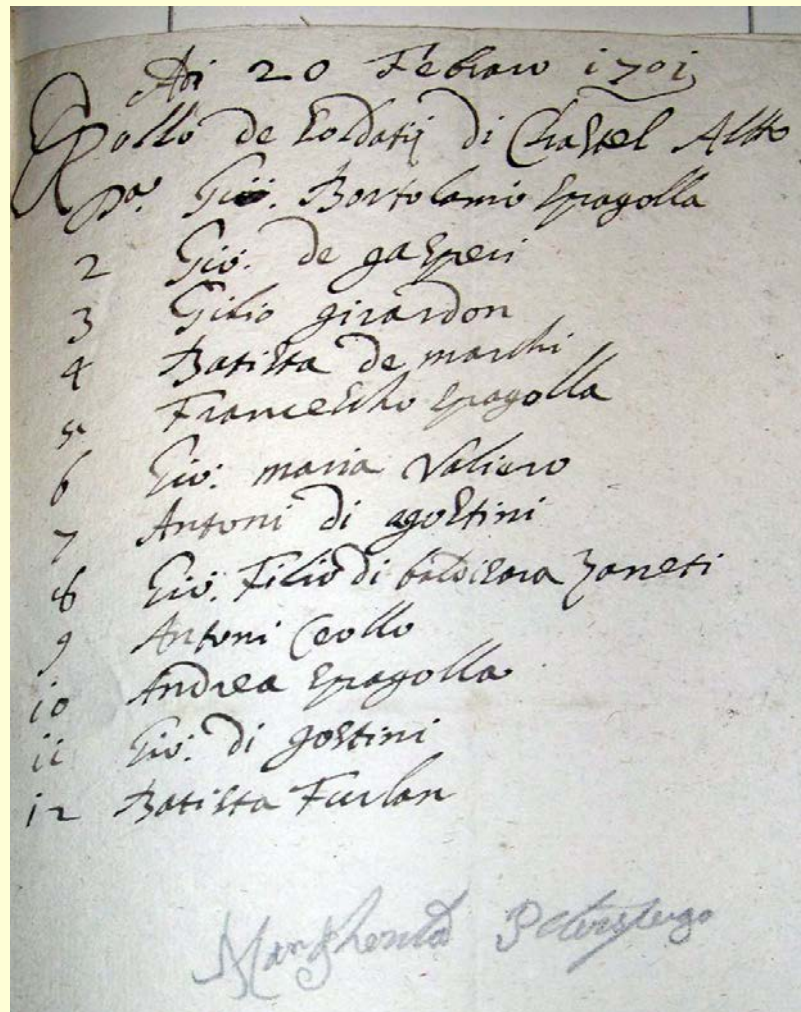 Adi 20 Febraro 1701
Rollo de Soldatij di Chastel Alto
Pa. Gio. Bortolamio Spagolla
2 Gio. de gasperi
3 Gilio girardon
4 Batista de marchi
5 Francescho Spagolla
6 Gio. maria Valiero
7 Antoni di agostini
8 Gio. Filio di baldisara Zaneti
9 Antoni Ceollo
10 Andrea Spagolla
11 Gio. di gostini
12 Batista Furlan
Margherita